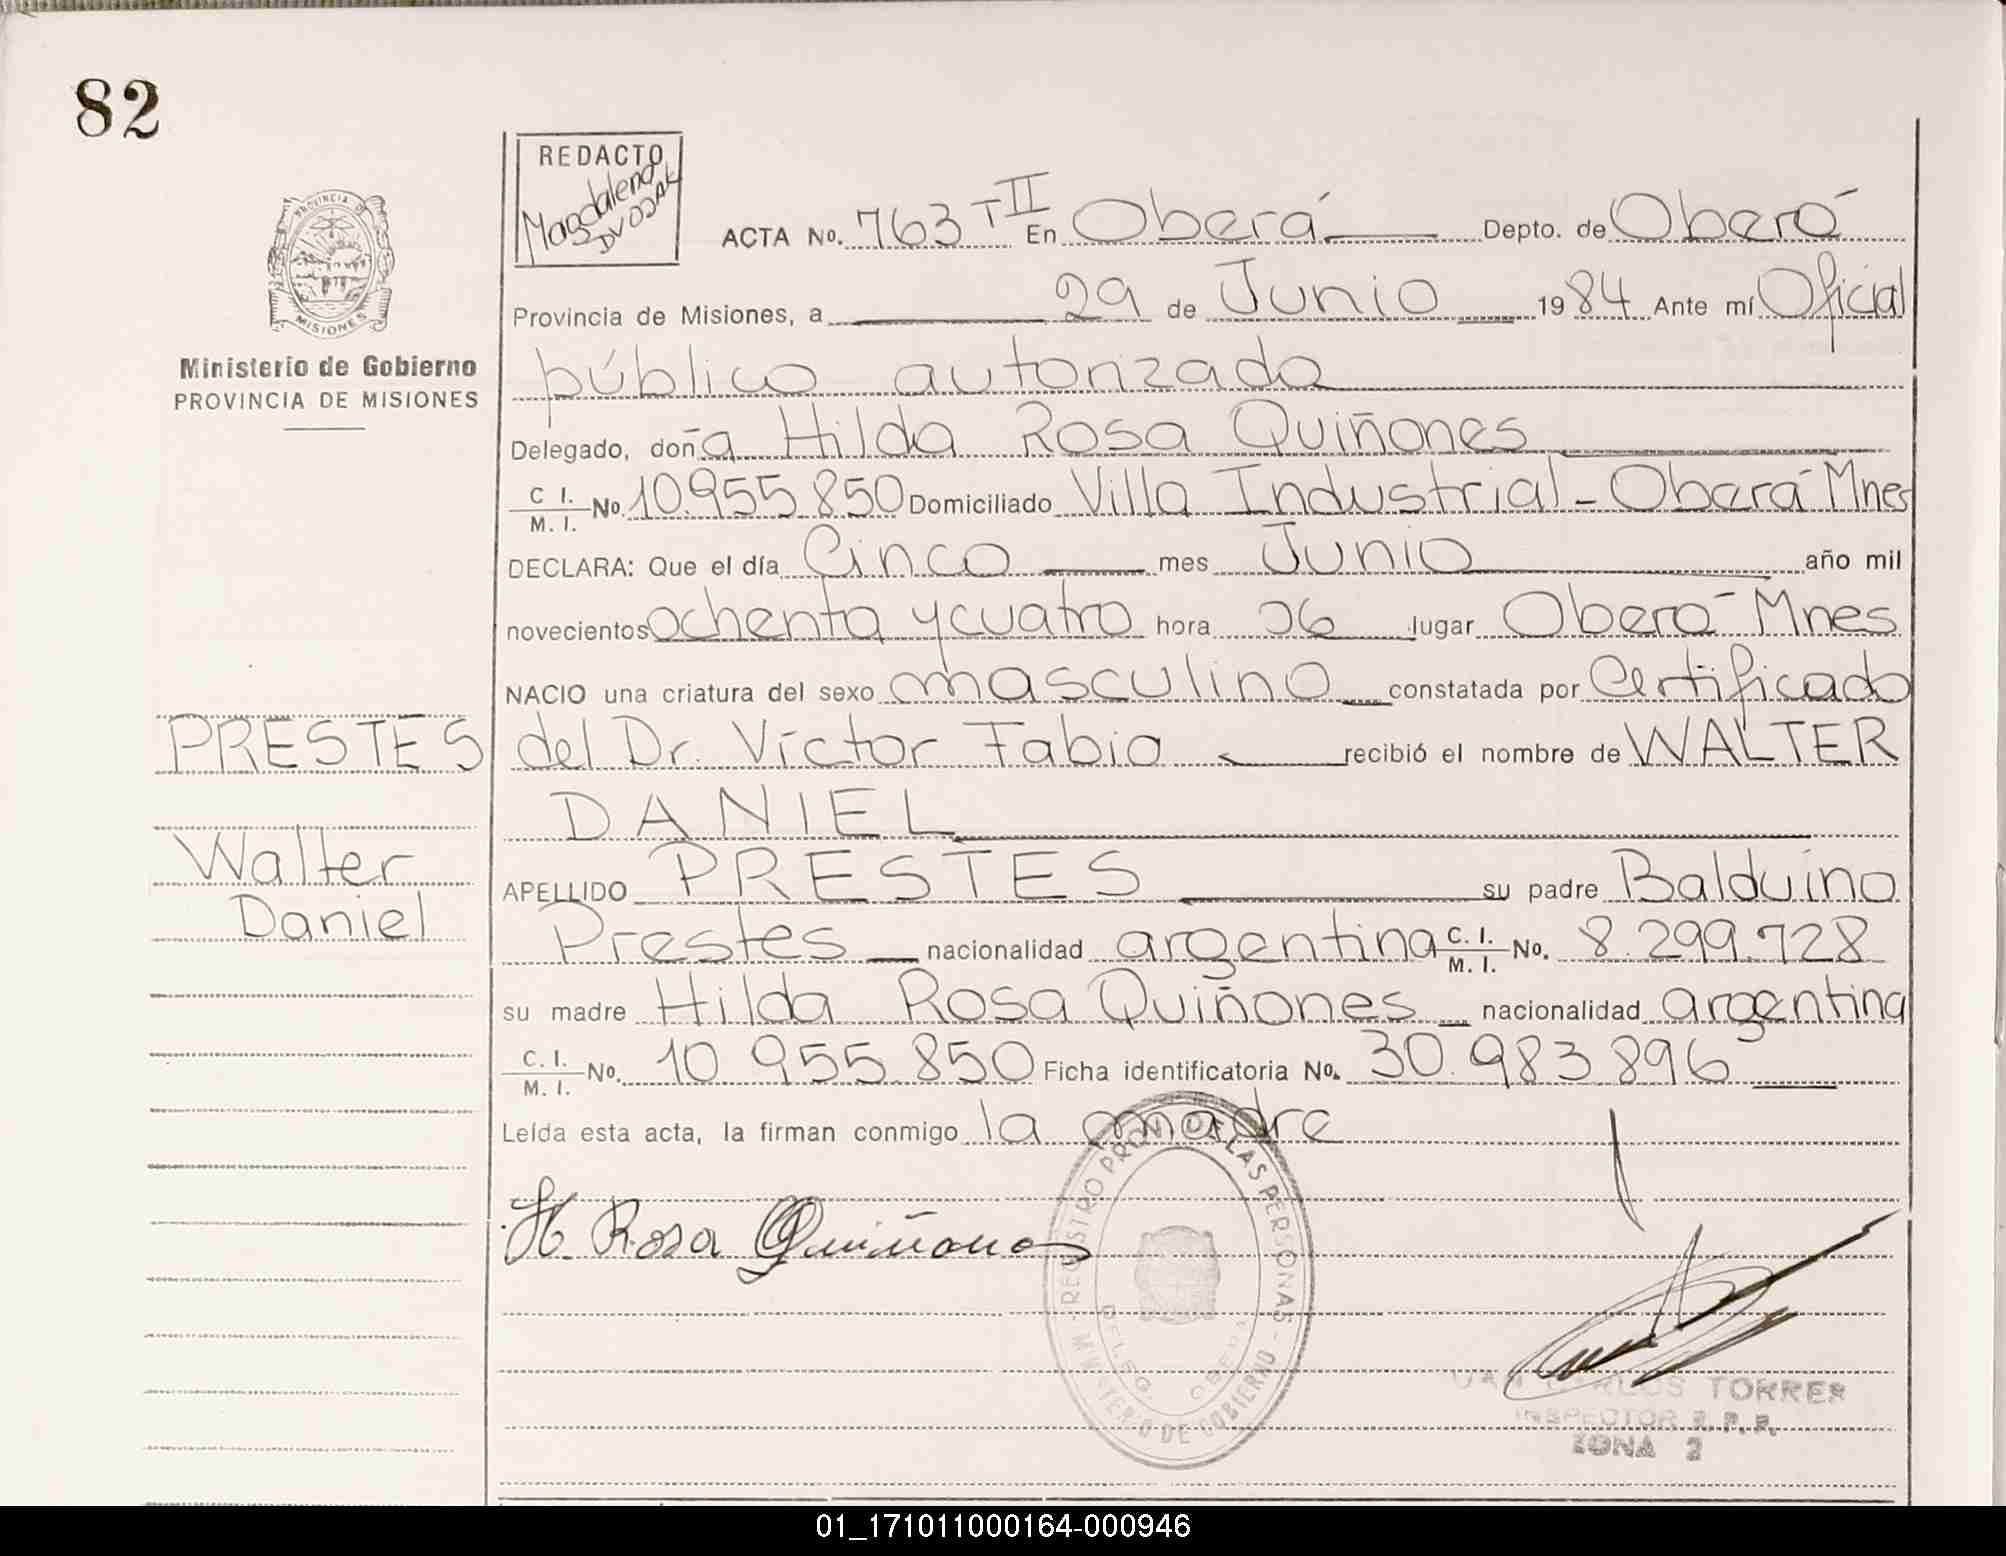 82
REDACTO
Magdalena
DVOJAK
PROVINCIA DE
MISIONES
Ministerio de Gobierno
PROVINCIA DE MISIONES
ACTA No. 763 T II En Oberá Depto. de Oberá
Provincia de Misiones, a 29 de Junio 1984 Ante mí Oficial
público autorizado
Delegado, doña Hilda Rosa Quiñones
C I. M. I. No. 10.955.850 Domiciliado Villa Industrial - Oberá Mnes
DECLARA: Que el día Cinco mes Junio año mil
novecientos ochenta y cuatro hora 06 lugar Oberá Mnes
NACIO una criatura del sexo masculino constatada por Certificado
PRESTES
del Dr. Víctor Fabio recibió el nombre de WALTER
DANIEL
Walter
Daniel
APELLIDO PRESTES su padre Balduíno
Prestes nacionalidad argentina C. I. M. I. No. 8.299.728
su madre Hilda Rosa Quiñones nacionalidad argentina
C. I. M. I. No. 10 955.850 Ficha identificatoria No. 30.983.896
Leída esta acta, la firman conmigo la madre
H. Rosa Quiñones
REGISTRO PROV. DE LAS PERSONAS
MINISTERIO DE GOBIERNO
DELEG. OBERA
JUAN CARLOS TORRES
INSPECTOR R. P. P.
ZONA 2
01_171011000164-000946